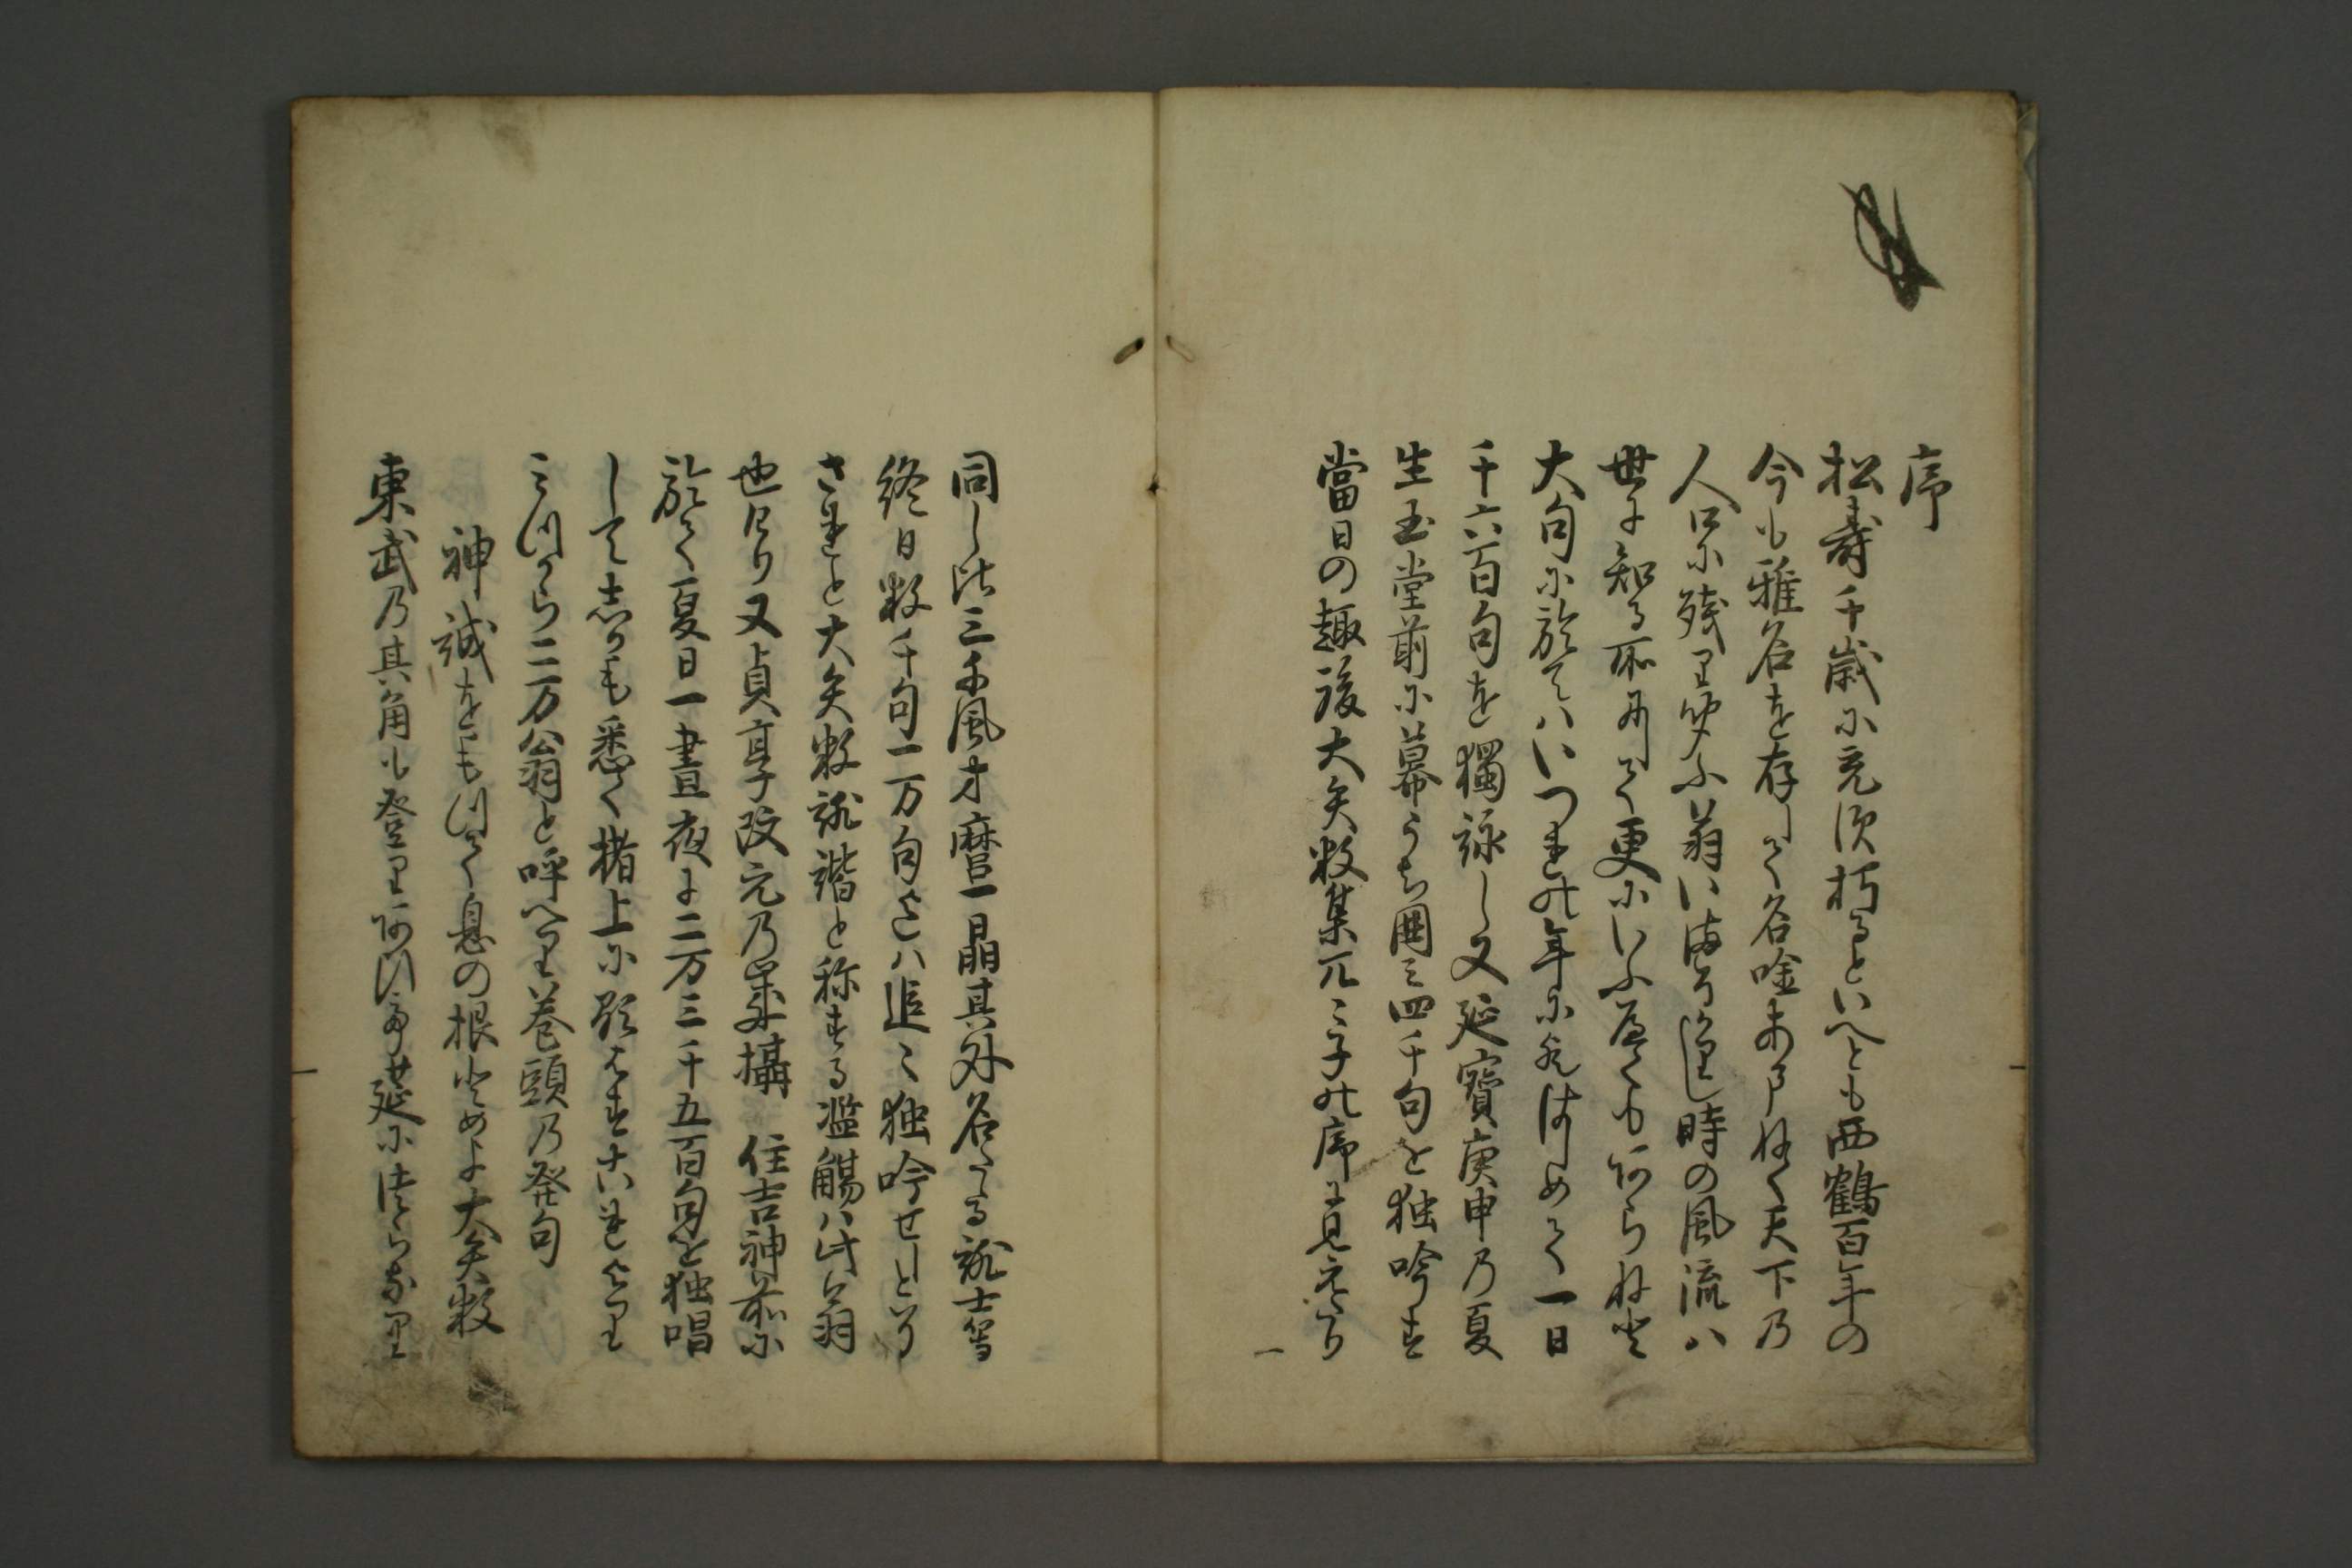 序
松寿千歳に充須朽るといへとも西鶴百年の
今も雅名を存して名唫あまねく天下乃
人口に残り聞ふ翁いませし時の風流ハ
世に知る所にして更にいふへくもあらねと
大句に於てハいつれの年に欤はしめて一日
千六百句を獨詠し又延寳庚申乃夏
生玉堂前に幕うち囲ミ四千句を独吟す
當日の趣後大矢数集兀々子の序に見えたり
一
同し比三千風才麿一晶其外名たる誹士等
終日数千句一万句えハ追々独吟せしとそ
されと大矢数誹諧と称する濫觴ハ此翁
也けり又貞享改元乃歳摂 住吉神前に
於て夏日一昼夜に二万三千五百句を独唱
して志かも悉く楮上に顕はす古今これより
ミつから二万翁と呼へり巻頭乃発句
神誠をもつて息の根とめよ大矢数
東武乃其角も登りあひて此筵に つらなり